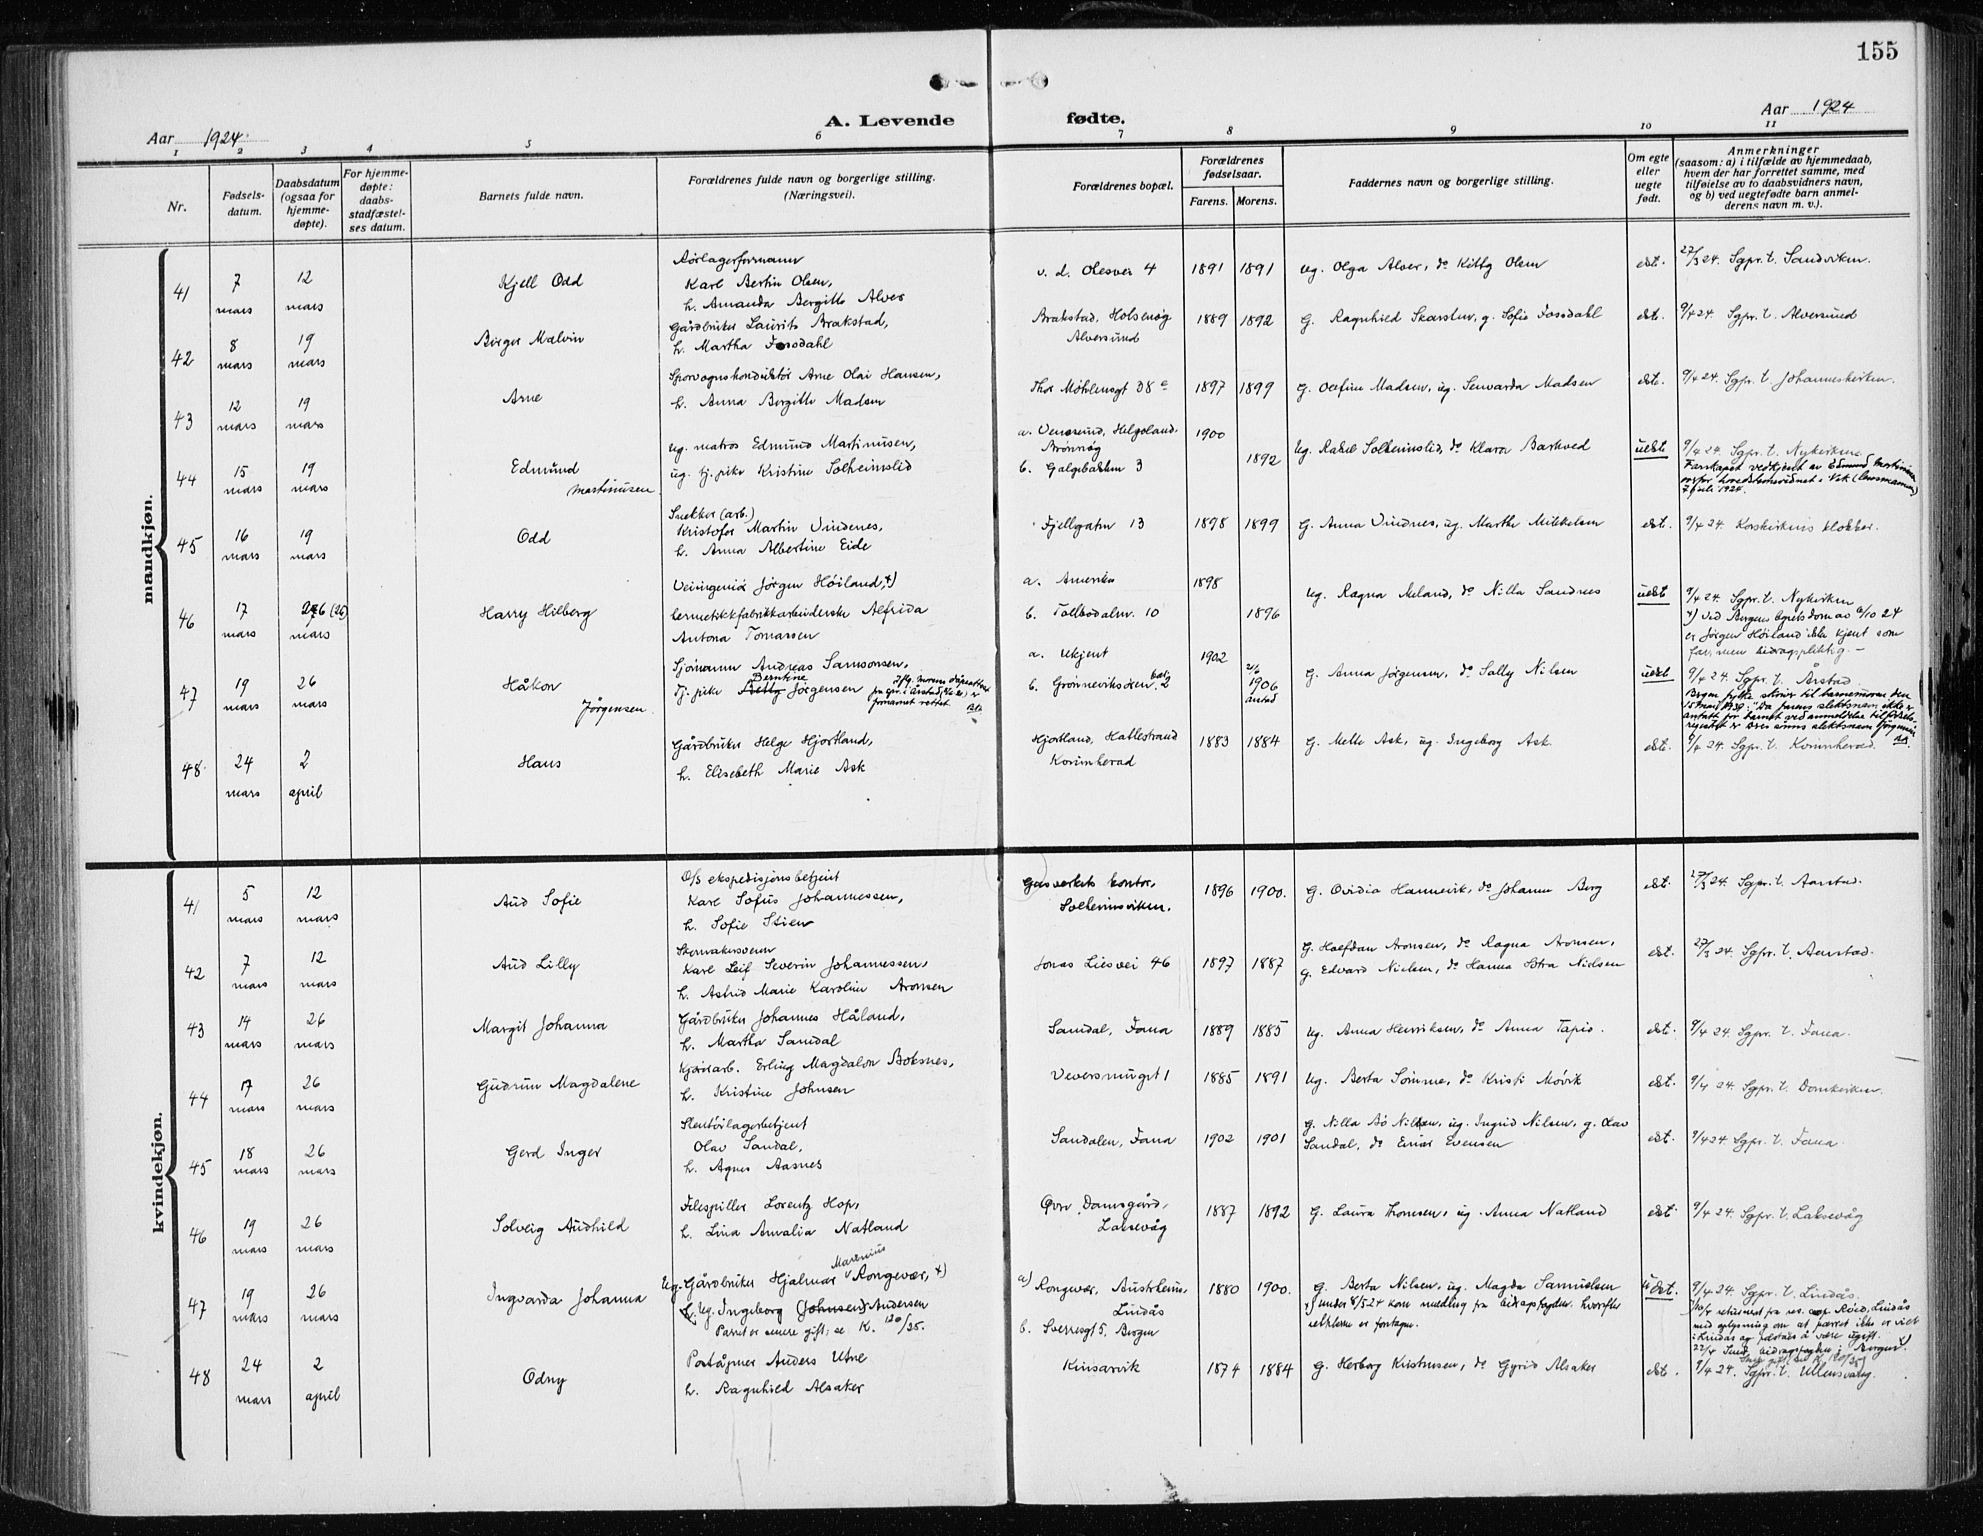 155
Aar 1924.
A. Levende fødte.
Aar 1924
1 2 3 4 5 6 7 8 9 10 11
Nr.
Fødsels-
datum.
Daabsdatum
(ogsaa for
hjemme-
døpte).
For hjemme-
døpte:
daabs-
stadfæstel-
ses datum.
Barnets fulde navn.
Forældrenes fulde navn og borgerlige stilling.
(Næringsvei).
Forældrenes bopæl.
Forældrenes
fødselsaar.
Farens. Morens.
Faddernes navn og borgerlige stilling.
Om egte
eller
uegte
født.
Anmerkninger
(saasom: a) i tilfælde av hjemmedaab,
hvem der har forrettet samme, med
tilføielse av to daabsvidners navn,
og b) ved uegtefødte barn anmel-
derens navn m. v.).
mandkjøn.
41 7 mars 12 mars Kjell Odd
Karl Bertin Olsen,
h. Amanda Bergitte Alver
v. d. Olesvei 4 1891 1891 ug. Olga Alver, do Kitty Olsen ekt. 27/3 24. Sgpr. t. Sandviken.
42 8 mars 19 mars Birger Malvin
Gårdbruker Laurits Brakstad,
h. Martha Fossdahl
Brakstad, Holsenøg
Alversund
1889 1892 g. Ragnhild Skarsten, g. Sofie Fossdahl ekt. 9/4 24. Sgpr. t. Alversund
43 12 mars 19 mars Arne
Sporvognskonduktør Arne Olai Hansen,
h. Anna Bergitte Madsen
Thor Møhlensgt 38 c 1897 1899 g. Olefine Madsen, ug. Senvarda Madsen ekt. 9/4 24. Sgpr. t. Johanneskirken.
44 15 mars 19 mars Edmund
Martinusen
ug. matros Edmund Martinusen,
ug. tj. pike Kristine Solheimslid
a. Helgeland.
Brønnøg
b. Galgebakken 3
1900 1892 ug. Rakel Solheimslid, do Klara Barkved uekt 9/4 24. Sgpr. t. Nykirken.
Farskapet vedkjent av Edmund Martinusen
7 juli 1924.
45 16 mars 19 mars Odd
Snekker (arb.)
Kristofer Martin Vindenes,
h. Anna Albertine Eide
Fjellgaten 13 1898 1899 g. Anna Vindnes, ug. Marthe Mikkelsen ekt. 9/4 24. Korskirkens klokker.
46 17 mars 26 (26) mars Harry Hilberg
Veiingeniør Jørgen Høiland, x)
hermetikkfabrikkarbeiderske Alfrida
Antona Tomassen
a. Amerika
b. Tollbodalm. 10
1898 1896 ug. Ragna Meland, do Nilla Sandnes uekt 9/4 24. Sgpr. t. Nykirken
x) Ved Bergens byrets dom av 6/10 24
er Jørgen Høiland ikke kjent som
far, men bidragspliktig. -
47 19 mars 26 mars Håkon
Jørgensen.
Sjømann Andreas Samsonsen,
Berntine
tj. pike Jørgensen
fornavnet rettet
a. Ukjent
b. Grønneviksøren 2
1902 1906
Årstad
g. Anna Jørgensen, do Solly Nilsen uekt 9/4 24. Sgpr. t. Årstad.
48. 24 mars 2 april Hans
Gårdbruker Helge Hjortland,
h. Elisebeth Marie Ask
Hjortland, Hatlestrand
Kvinnherad
1883 1884 g. Mette Ask, ug. Ingeborg Ask. ekt. 9/4 24. Sgpr. t. Kvinnherad.
kvindekjøn.
41 5 mars 12 mars Aud Sofie
O/S ekspedisjonsbetjent
Karl Sofus Johannessen,
h. Sofie Stien
Gasverkets kontor,
Solheimsviken.
1896 1900. g. Ovidia Hannevik, do Johanne Berg ekt. 27/3 24. Sgpr. t. Aarstad.
42 7 mars 12 mars Aud Lilly
Skomakersvenn
Karl Leif Severin Johannessen,
h. Astrid Marie Karoline Aronsen
Jonas Liesvei 46 1897 1887
g. Halfdan Aronsen, do Ragna Aronsen,
g. Edvard Nielsen, do Hanna Petra Nielsen
ekt. 27/3 24. Sgpr. t. Aarstad.
43 14 mars 26 mars Margit Johanna
Gårdbruker Johannes Håland,
h. Martha Samdal
Samdal, Fana 1889 1885 ug. Anna Henriksen, do Anna Tapio. ekt. 9/4 24. Sgpr. t. Fana.
44 17 mars 26 mars Gudrun Magdalene
Kjørearb. Erling Magdalon Boksnes,
h. Kristine Johnsen
Veversmugt 1 1885 1891 ug. Berta Sømme, do Kristi Møvik ekt. 9/4 24. Sgpr. t. Domkirken.
45 18 mars 26 mars Gerd Inger
Stentøilagerbetjent
Olav Sandal,
h. Agnes Aasnes
Sandalen, Fana 1902 1901
g. Nilla Bø Nilsen, ug. Ingrid Nilsen, g. Olav
Sandal, do Einar Evensen
ekt. 9/4 24 Sgpr. t. Fana.
46 19 mars 26 mars Solveig Audhild
Filespiller Lorentz Hop,
h. Lina Amalia Natland
Øvre Damsgård,
Laksevåg
1887 1892 g. Laura Thomsen, ug. Anna Natland ekt. 9/4 24. Sgpr. t. Laksevåg
47 19 mars 26 mars Ingvarda Johanna
Marenius
Ug. Gårdbruker Hjalmar Rongevær, x)
Ug. Ingeborg (Johnsen) Andersen
Parret er senere gift; se K. 120/25.
a) Rongevær, Austrheim,
Lindås
b. Sverresgt 5, Bergen
1880 1900. g. Berta Nilsen, ug. Magda Samuelsen
x) under 8/5 24 kom melding fra bidragsfogden hvorefter
rettelsene er foretagne.
uekt. 9/4 24. Sgpr. t. Lindås.
med oplysning om at parret ikke er viet
i Lindås og påståes å være ugift.
22/4 Send bidragsfogden i Bergen. x)
48 24 mars 2 april Odny
Poståpner Anders Utne
h. Ragnhild Alsaker
Kinsarvik 1874 1884 g. Herborg Kristensen, do Gyrid Alsaker ekt. 9/4 24. Sgpr. t. Ullensvang.